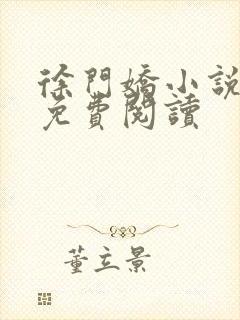 徐門嬌小說
免費閱讀
董立景